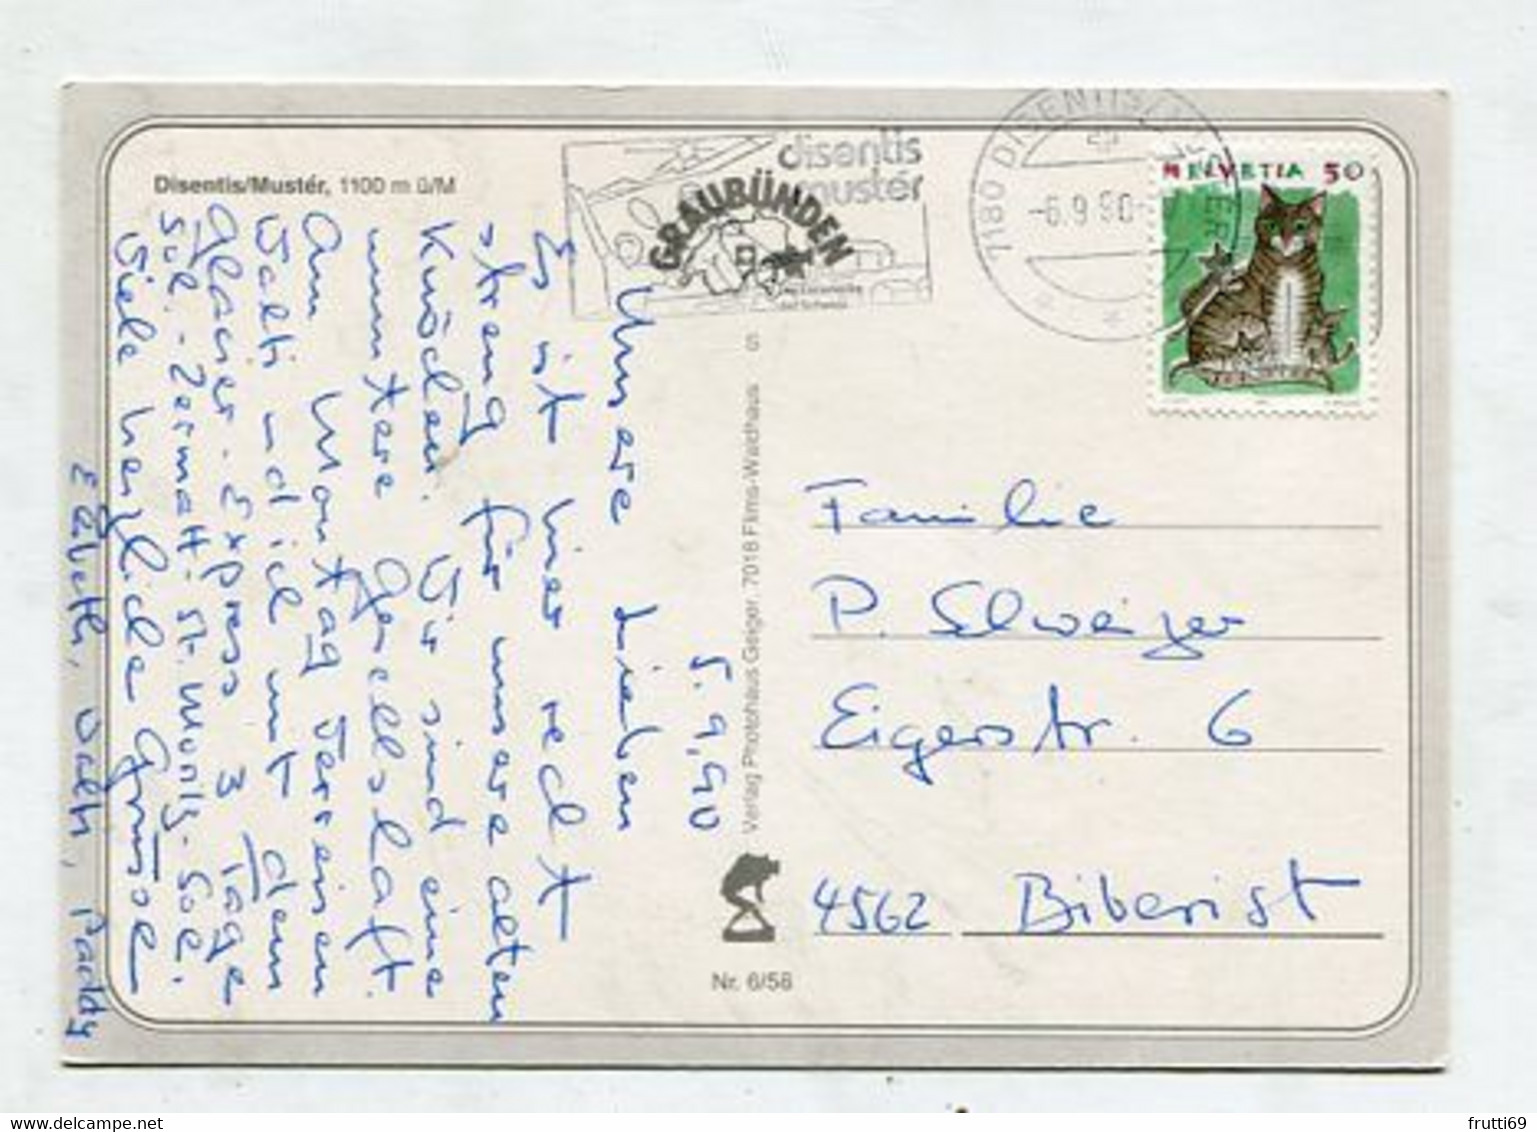 Disentis/Mustér, 1100 m ü/M
disentis
mustér
GRAUBÜNDEN
7180 DISENTIS/MUSTER
-6.9.90-
HELVETIA 50
5.9.90
Unsere Lieben
Es ist hier recht
streng für unsere alten
Knochen. Wir sind eine
muntere Gesellschaft.
Am Montag verreisen
Walti und ich mit dem
Glacier-Express 3 Tage
Sol.-Zermatt-St. Moritz-Sol.
Viele herzliche Grüsse
Walti, Paddy
Verlag Photohaus Geiger, 7018 Flims-Waldhaus
S
Nr. 6/58
Familie
P. Schweizer
Eigerstr. 6
4562 Biberist
frutti69